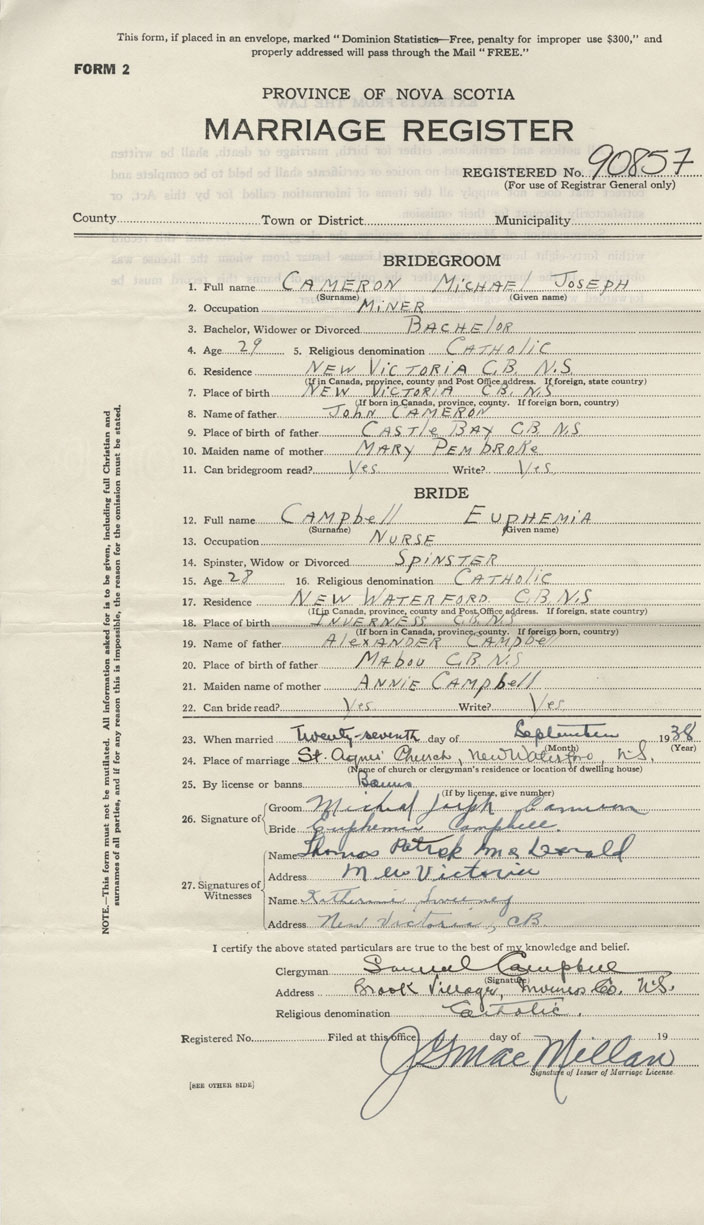 This form, if placed in an envelope, marked "Dominion Statistics—Free, penalty for improper use $300," and
properly addressed will pass through the Mail "FREE."
FORM 2
PROVINCE OF NOVA SCOTIA
MARRIAGE REGISTER
REGISTERED No. 90857
(For use of Registrar General only)
County Town or District Municipality
BRIDEGROOM
1. Full name CAMERON MICHAEL JOSEPH
(Surname) (Given name)
2. Occupation MINER
3. Bachelor, Widower or Divorced BACHELOR
4. Age 29 5. Religious denomination CATHOLIC
6. Residence NEW VICTORIA C.B. N.S
(If in Canada, province, county and Post Office address. If foreign, state country)
7. Place of birth NEW VICTORIA C.B. N.S
(If born in Canada, province, county. If foreign born, country)
8. Name of father JOHN CAMERON
9. Place of birth of father CASTLE BAY C.B N.S
10. Maiden name of mother MARY PEMBROKE
11. Can bridegroom read? Yes Write? Yes
BRIDE
12. Full name CAMPbell EUPHEMIA
(Surname) (Given name)
13. Occupation NURSE
14. Spinster, Widow or Divorced SPINSTER
15. Age 28 16. Religious denomination CATHOLIC
17. Residence NEW WATERFORD C.B N.S
(If in Canada, province, county and Post Office address. If foreign, state country)
18. Place of birth INVERNESS C.B. N.S
(If born in Canada, province, county. If foreign born, country)
19. Name of father AlExANDER CAMPbell
20. Place of birth of father MAbou C.B. N.S
21. Maiden name of mother ANNIE CAMPbell
22. Can bride read? Yes Write? Yes
23. When married Twenty-seventh day of September 1938
(Month) (Year)
24. Place of marriage St. Agnes' Church, New Waterford, N.S.
(Name of church or clergyman's residence or location of dwelling house)
25. By license or banns Banns
(If by license, give number)
26. Signature of Groom Michael Joseph Cameron
Bride Euphemia Campbell.
27. Signatures of Witnesses
Name Thomas Patrick Mc Donald
Address New Victoria
Name Katherine Sweeney
Address New Victoria, C.B.
I certify the above stated particulars are true to the best of my knowledge and belief.
Clergyman Samuel Campbell
(Signature)
Address Brook Village, Inverness Co. N.S.
Religious denomination Catholic.
Registered No. Filed at this office day of 19
J G MacMillan
Signature of Issuer of Marriage License
[SEE OTHER SIDE]
NOTE.—This form must not be mutilated. All information asked for is to be given, including full Christian and
surnames of all parties, and if for any reason this is impossible, the reason for the omission must be stated.